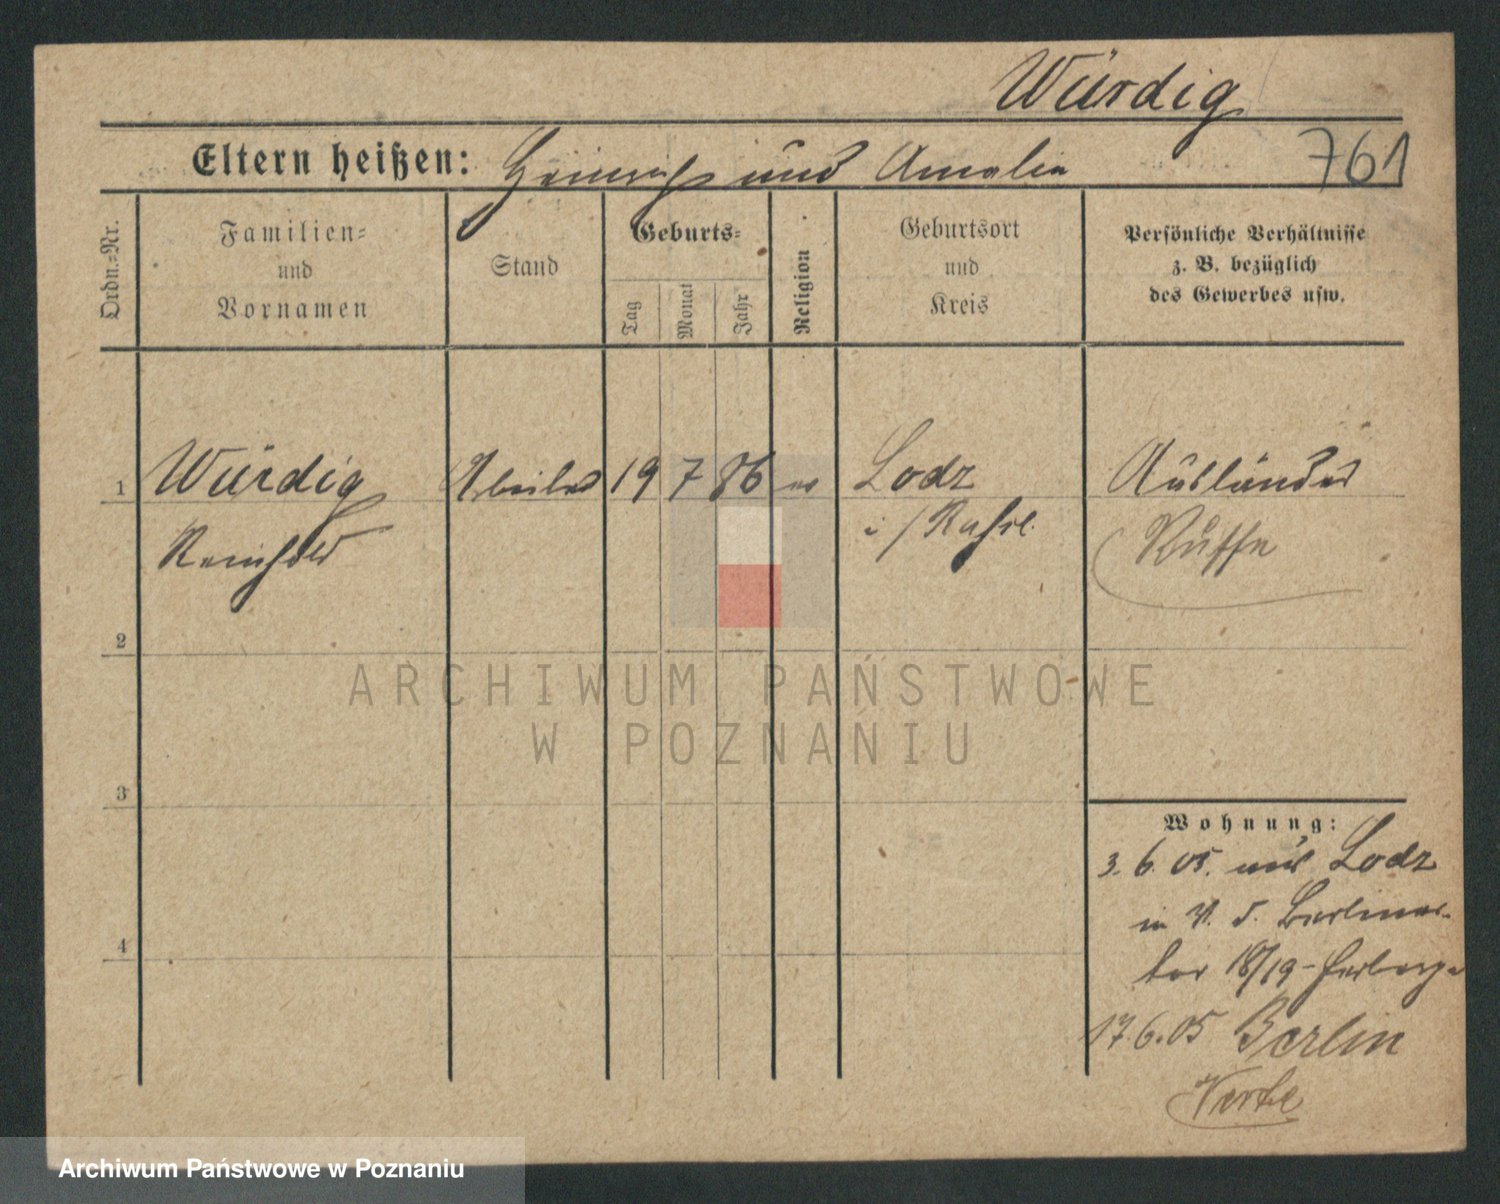 Würdig
Eltern heißen: Heinrich und Amalie
761
Ordn.-Nr.
Familien-
und
Vornamen
Stand
Geburts-
Tag
Monat
Jahr
Religion
Geburtsort
und
Kreis
Persönliche Verhältnisse
z. B. bezüglich
des Gewerbes usw.
1
Würdig
Reinhold
Arbeiter
19
7
86
ev
Lodz
i/Rußl.
Ausländer
Russe
2
3
4
Wohnung:
3. 6. 05. aus Lodz
in V. d. Berliner-
tor 18/19 - Herberge
17.6.05 Berlin
ARCHIWUM PAŃSTWOWE
W POZNANIU
Archiwum Państwowe w Poznaniu